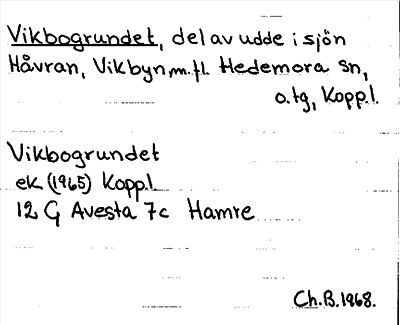 Vikbogrundet, del av udde i sjön
Håvran, Vikbyn, m.fl. Hedemora sn,
o. tg, Kopp.l.
Vikbogrundet
ek (1965) Kopp.l
12 G Avesta 7c Hamre
Ch.B. 1968.